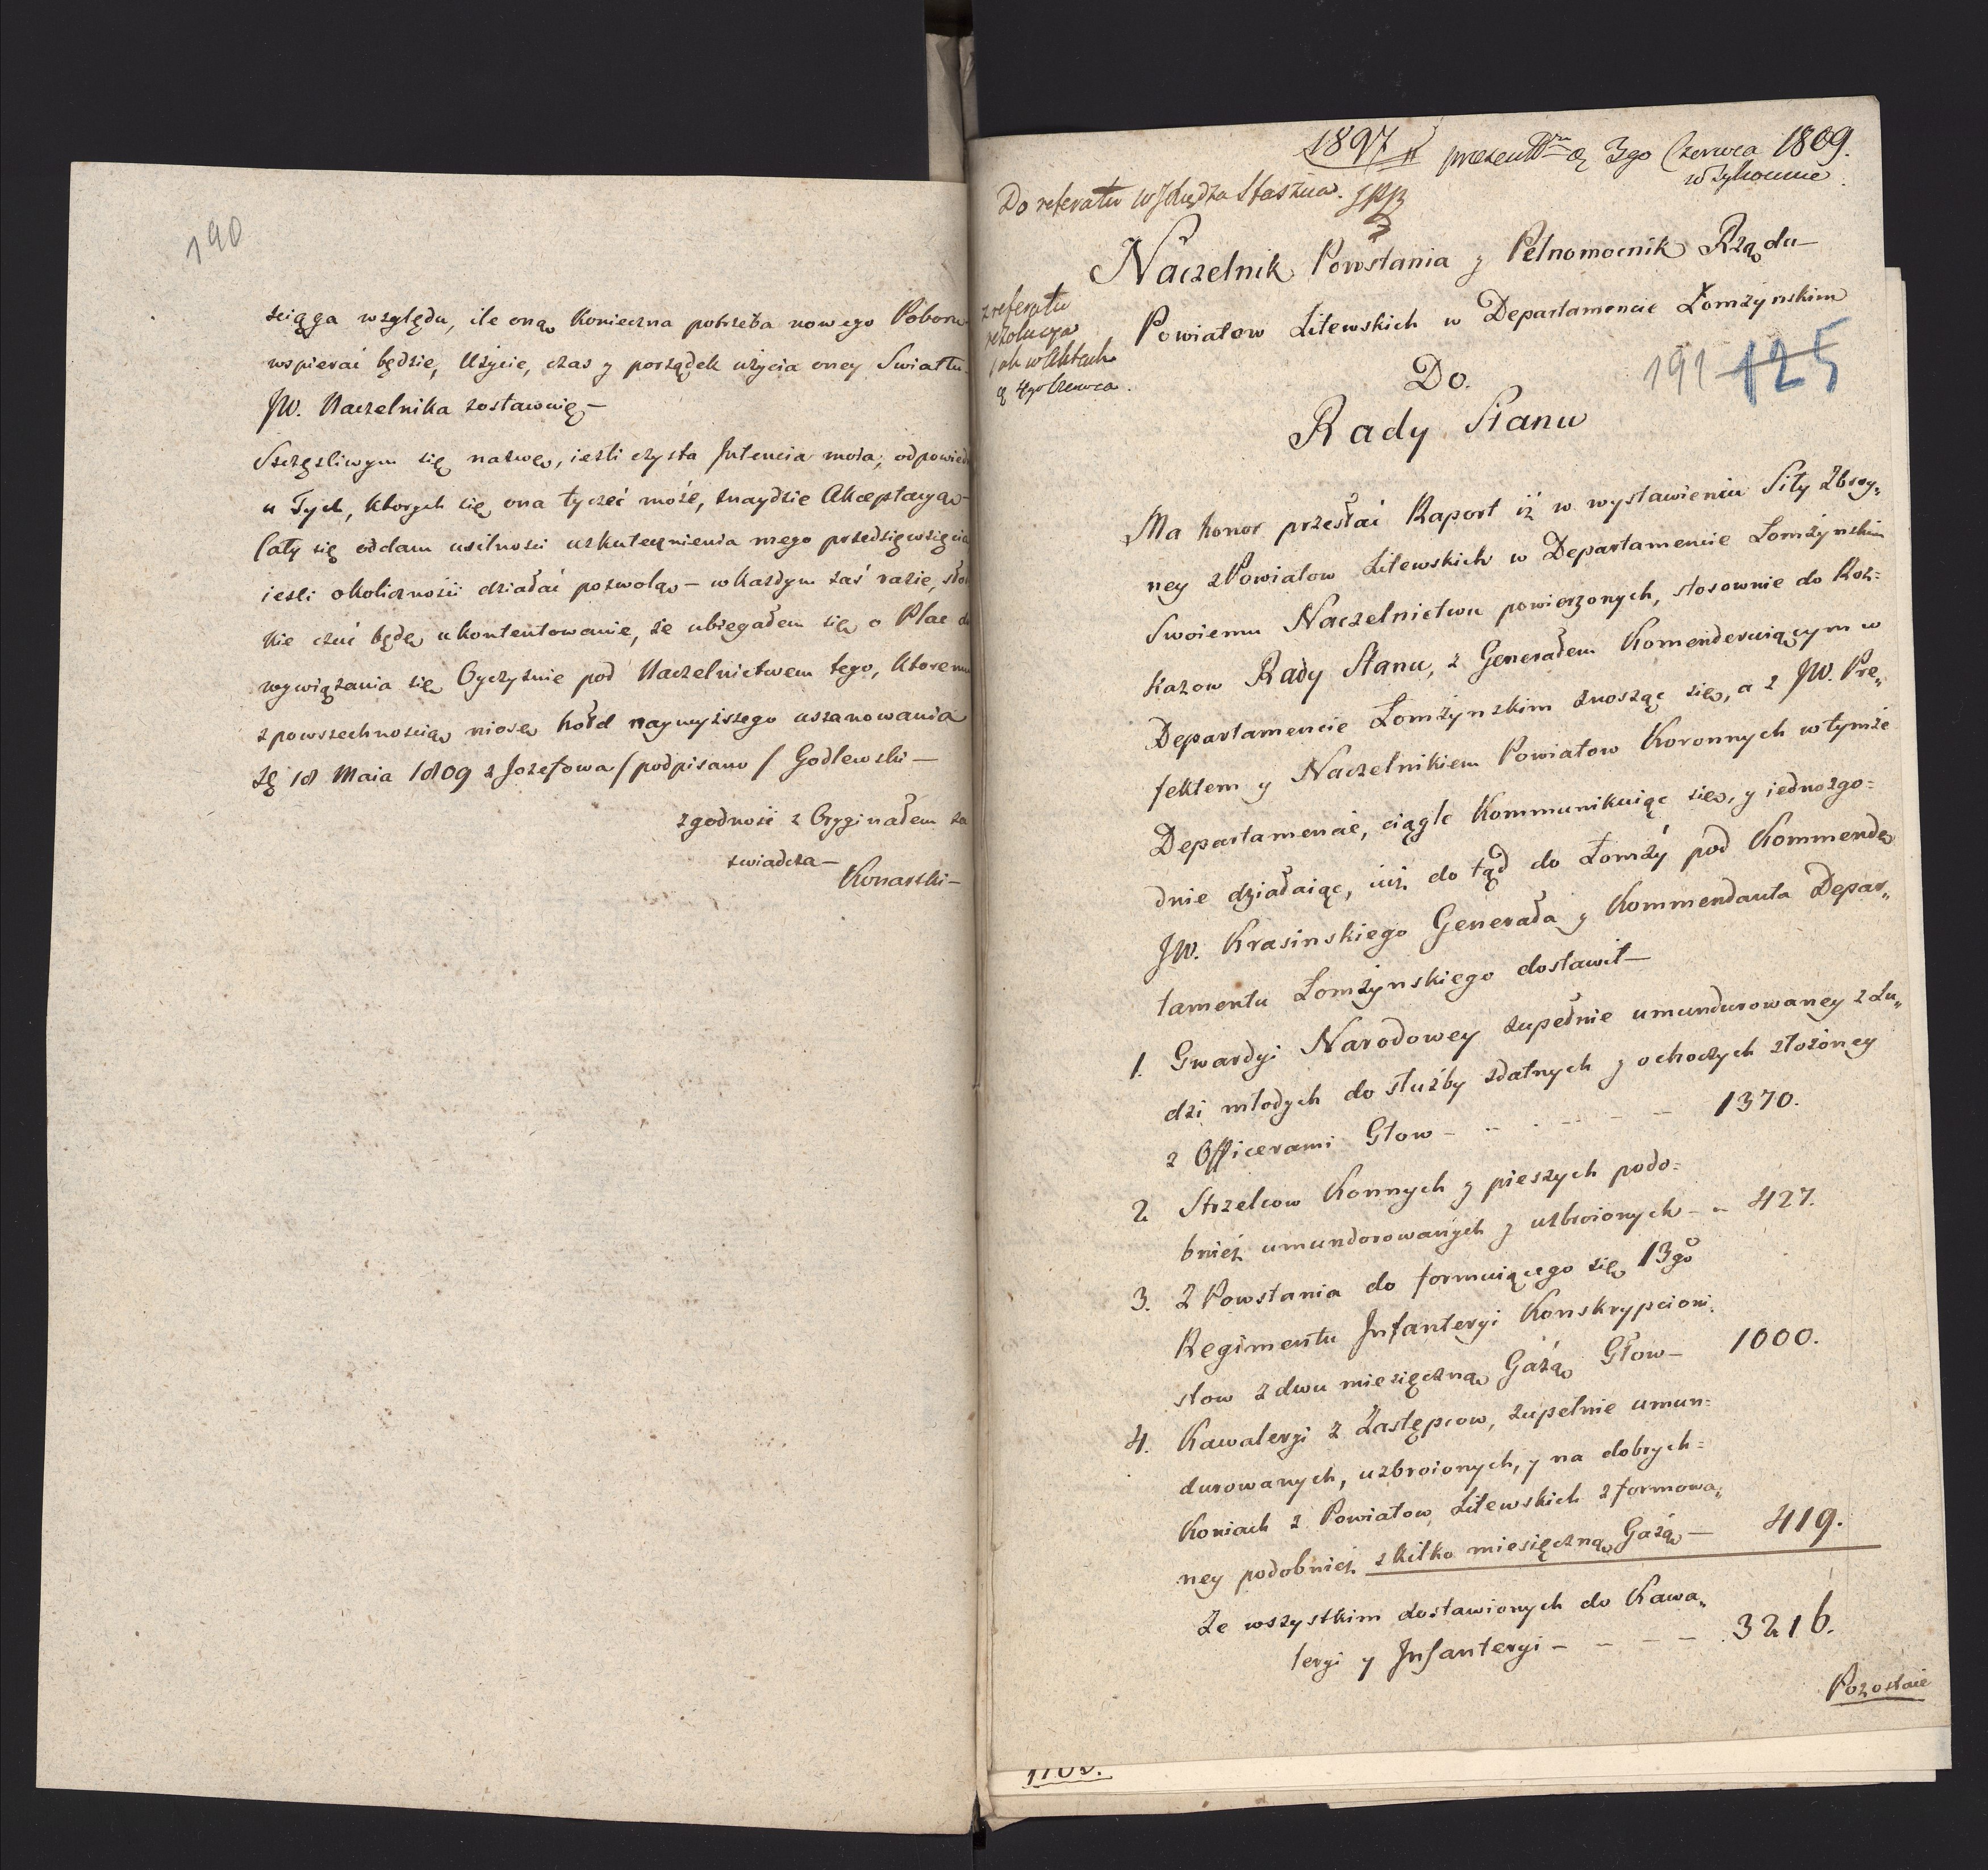 190
sciąga względu, ile oną konieczna potrzeba nowego Poboru
wspierać będzie, Użycie, czas y porządek użycia oney Swiatłu
JW. Naczelnika zostawuię –
Szczęsliwym się nazwę, iezli czysta Intencia moia, odpowied
u Tych, ktorych się ona tyczeć może, znaydzie Akceptacyą –
Cały się oddam usilnosci uskutecznienia mego przedsięwzięcia
iesli okolicznosci działać pozwolą – w każdym zaś razie, słod
kie czuć będę ukontentowanie, że ubiegałem się o Plac do
wywiązania się Oyczyznie pod Naczelnictwem tego, ktoremu
z powszechnoscią niosę hołd naywyższego uszanowania
Dę 18 Maia 1809 z Jozefowa / podpisano / Godlewski –
zgodność z Oryginałem za
swiadcza –
Konarski –
1897 presentt ą 3go Czerwca 1809.
w Tykocinie
Do referatu W Xiędza Staszica.
Naczelnik Powstania y Pełnomocnik Rządu –
z referatu
rezolucya
jak w Aktach
ą 4go Czerwca.
Powiatow Litewskich w Departamencie Łomżynskim
Do.
191 125
Rady Stanu
Ma honor przesłać Raport iż w wystawieniu Siły Zbroy„
ney z Powiatow Litewskich w Departamencie Łomżynskim
Swoiemu Naczelnictwu powierzonych, stosownie do Roz=
kazow Rady Stanu, z Generałem Komenderuiącym w
Departamencie Łomżynskim znosząc się, a z JW. Pre„
fektem y Naczelnikiem Powiatow Koronnych w tymże
Departamencie, ciągle Kommunikuiąc się, y iednozgo=
dnie działaiąc, iuż do tąd do Łomży pod Kommendę
JW. Krasinskiego Generała y Kommendanta Depar„
tamentu Łomżynskiego dostawił –
1. Gwardyi Narodowey zupełnie umundurowaney z Lu„
dzi młodych do służby zdatnych y ochoczych złożoney
z Officerami Głow – 1370.
2 Strzelcow Konnych y pieszych podo=
bnież umundorowanych y uzbroionych – 427.
3. Z Powstania do formuiącego się 13go
Regimentu Infanteryi Konskrypcioni„
stow z dwu miesięczną Gażą Głow – 1000.
4. Kawaleryi z Zastępcow, zupełnie umun=
durowanych, uzbroionych, y na dobrych=
Koniach z Powiatow Litewskich z formowa„
ney podobnież z kilko miesięczną Gażą – 419.
Ze wszystkim dostawionych do Kawa„
leryi y Infanteryi – – – – 3216.
Pozostaie